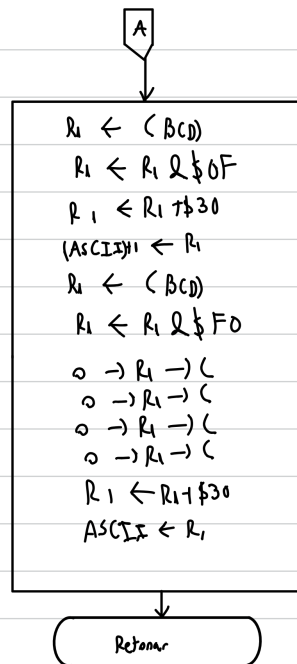 A
R1 ← (BCD)
R1 ← R1 & $0F
R1 ← R1 + $30
(ASCII)+1 ← R1
R1 ← (BCD)
R1 ← R1 & $F0
0 → R1 → C
0 → R1 → C
0 → R1 → C
0 → R1 → C
R1 ← R1 + $30
ASCII ← R1
Retonar